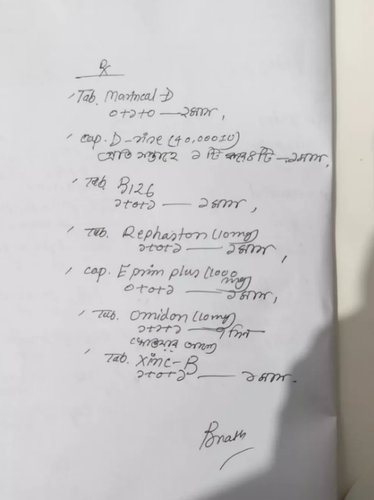 Rx
Tab. Marineal-D
০+১+০ — ২মাস,
Cap. D-rise (40,000IU)
প্রতি সপ্তাহে ১ টি করে ৪ টি — ১মাস,
Tab. B126
১+০+১ — ১মাস,
Tab. Rephaston (10mg)
১+০+১ — ১মাস,
Cap. Eprim plus (1000 mg)
০+০+১ — ১মাস,
Tab. Omidon (10mg)
১+১+১ —
খাওয়ার আগে
Tab. Xinc-B
১+০+১ — ১মাস.